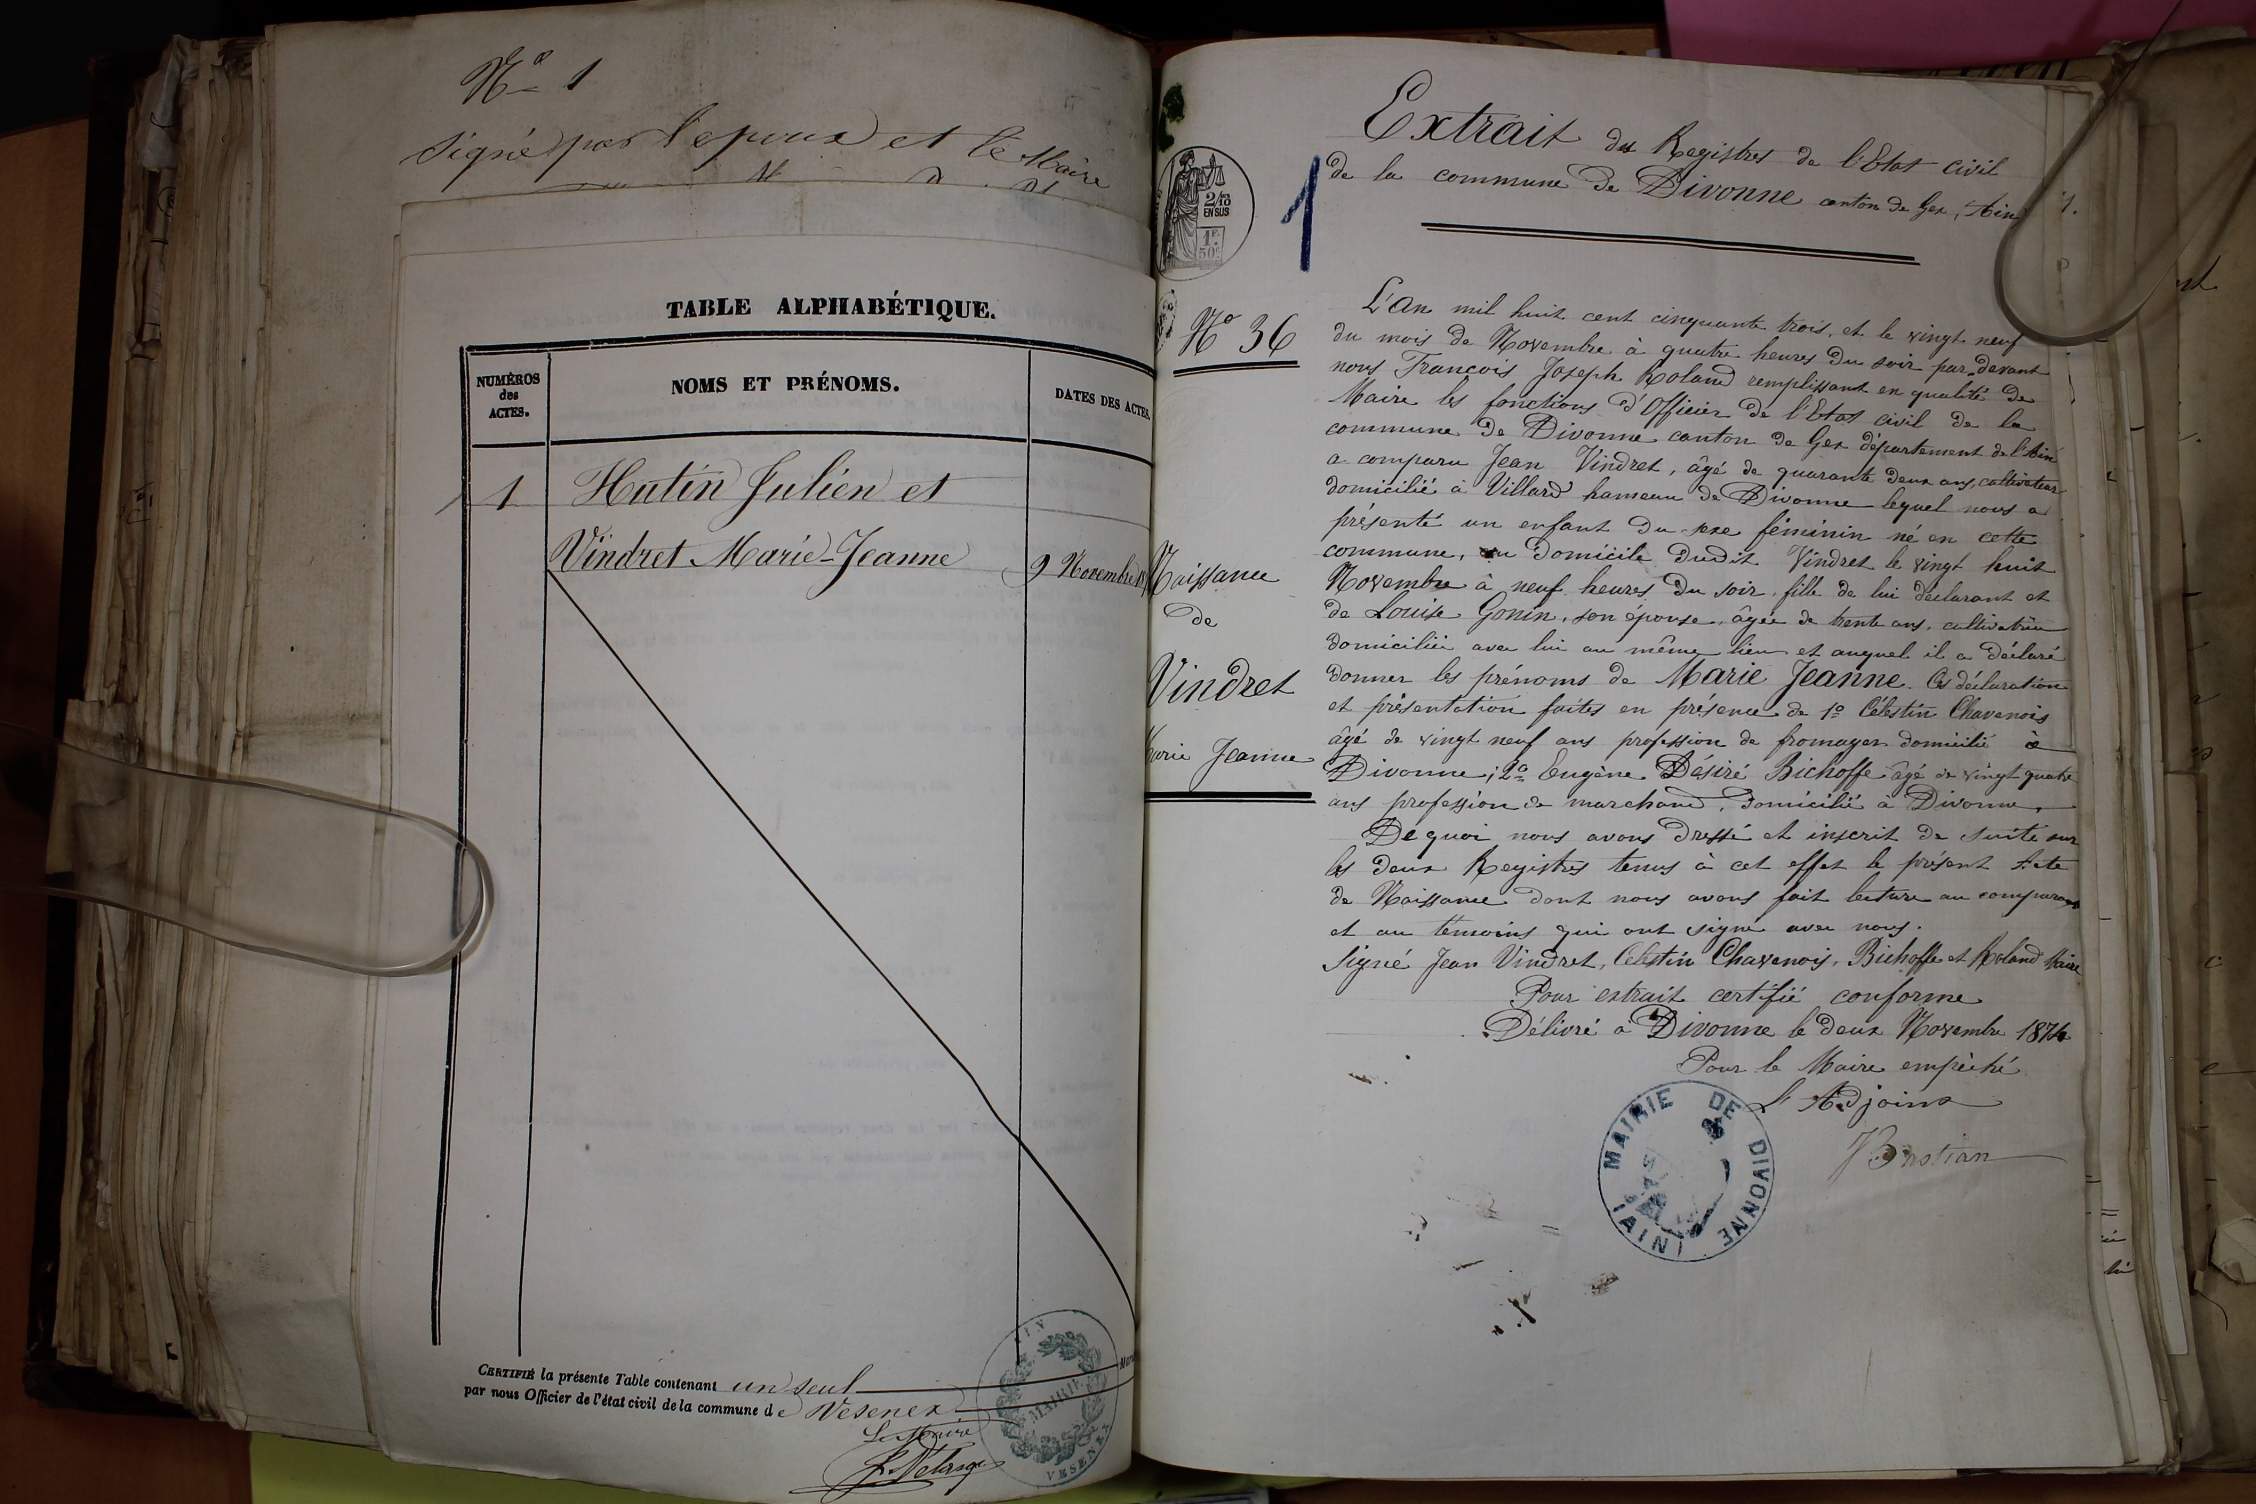 Nº 1
Signé par l'epoux et le Maire
TABLE ALPHABÉTIQUE.
NUMÉROS
des
ACTES.
NOMS ET PRÉNOMS.
DATES DES ACTES.
1 Hutin Julien et
Vindret Marie-Jeanne 9 Novembre
CERTIFIÉ la présente Table contenant un seul
par nous Officier de l'état civil de la commune de Vesenex
Le Maire
MAIRIE
VESENEX
2/10
EN SUS
1F.
50c
1
Nº 36
Naissance
de
Vindret
Marie Jeanne
Extrait des Registres de l'Etat civil
de la commune de Divonne canton de Gex, Ain
L'an mil huit cent cinquante trois, et le vingt neuf
du mois de Novembre à quatre heures du soir par devant
nous François Joseph Roland remplissant en qualité de
Maire les fonctions d'Officier de l'Etat civil de la
commune de Divonne canton de Gex département de l'Ain
a comparu Jean Vindret, âgé de quarante deux ans, cultivateur
domicilié à Villard hameau de Divonne lequel nous a
présenté un enfant du sexe féminin né en cette
commune, au domicile dudit Vindret le vingt huit
Novembre à neuf heures du soir, fille de lui déclarant et
de Louise Gonin, son épouse, âgée de trente ans, cultivatrice
domiciliée avec lui au même lieu et auquel il a déclaré
donner les prénoms de Marie Jeanne. Ces déclaration
et présentation faites en présence de 1º Célestin Chavenois
âgé de vingt neuf ans profession de fromager domicilié à
Divonne; 2º Eugène Désiré Bichoffe âgé de vingt quatre
ans profession de marchand, domicilié à Divonne.
De quoi nous avons dressé et inscrit de suite sur
les deux Registres tenus à cet effet le présent Acte
de Naissance dont nous avons fait lecture au comparant
et au témoins qui ont signé avec nous.
Signé Jean Vindret, Célestin Chavenois, Bichoffe et Roland Maire
Pour extrait certifié conforme
Délivré à Divonne le deux Novembre 1874
Pour le Maire empêché
L'Adjoint
Bastian
MAIRIE DE DIVONNE
(AIN)